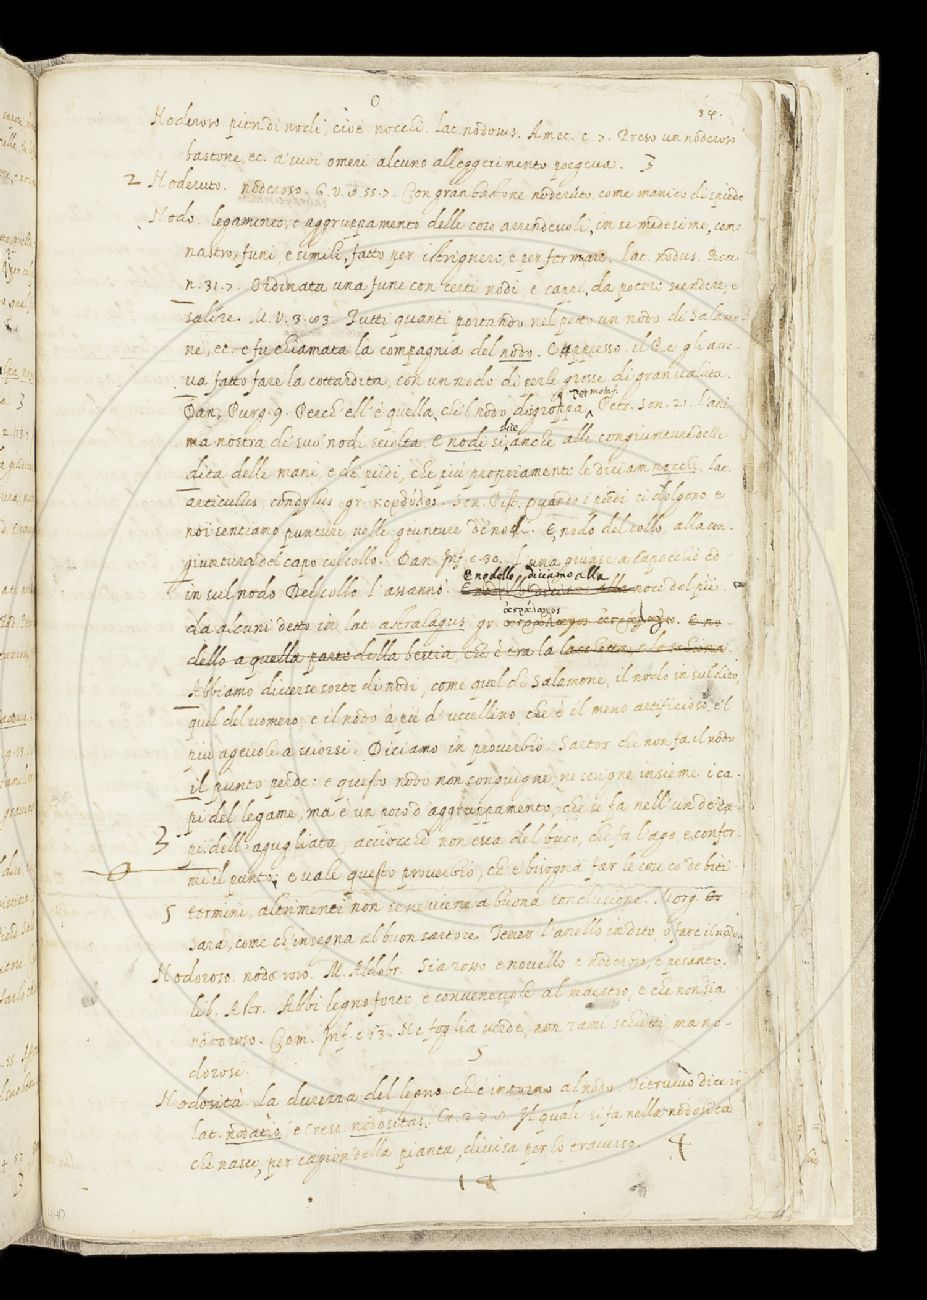 O
34.
Noderoso pien di nodi, cioè nocchi. lat. nodosus. Amet. c. 7. Preso un noderoso
bastone, ec. a' suoi omeri alcuno alleggerimento porgeva. 3
2 Noderuto. noderoso. G. V. 10. 55. 7. Con gran bastone noderuto, come manico di spiede
Nodo. legamento, e aggruppamento delle cose arrendevoli, in se medesime, come
nastro, funi, e simili, fatto per istrignere, e per fermare. lat. nodus. Bocc.
n. 31. 7. Ordinata una fune con certi nodi e cappi, da potere scendere, e
salire. M. V. 3. 83. Tutti quanti portando nel petto un nodo di Salamo
ne, ec. e fu chiamata la compagnia del nodo. E appresso. il Re gli ave
va fatto fare la cottardita, con un nodo di perle grosse di gran valuta.
Dan. Purg. 9. Perch' ell' è quella, che 'l nodo disgroppa per metaf. Petr. Son. 21. L'ani
ma nostra di suo nodi sciolta. E nodi si dice anche alle congiunture delle
dita delle mani, e de' piedi, che più propriamente le diciam nocche. lat.
articulus, condylus gr. κονδύλος. Sen. Pist. Quando i piedi ci dolgono e
noi sentiamo punture nelle giunture de' nodi. E nodo del collo, alla con-
giuntura del capo col collo. Dan. Inf. c. 30. L'una giunse a Capocchio ed
in sul nodo Del collo l'assannò. E nodello diciamo alla noce del piè
da alcuni detto in lat. astralagus gr. ἀστράγαλος. E no
dello a quella parte della bestia, che è tra la
Abbiamo diverse sorte di nodi, come quel di Salamone, il nodo in sul dito,
quel del vomero, e il nodo a piè d'uccellino, che è il meno artificioso, e 'l
più agevole a sciorsi. Diciamo in proverbio. Sartor che non fa il nodo
il punto perde: e questo nodo non congiugne, ne strigne insieme i ca-
pi del legame, ma è un poco d'aggruppamento, che si fa nell' un de' ca-
3 pi dell' agugliata, acciocchè non esca del buco, che fa l'ago, e confer-
mi il punto, e vale questo proverbio, ch' e' bisogna far le cose co' debiti
5 termini, altrimenti non se ne viene a buona conclusione. Morg. Or
sarà, come ch' insegna al buon sartore Tener l'anello in dito, o fare il nodo
Nodoroso. noderoso. M. Aldobr. Sia rosso e novello e noderoso, e pesante.
lib. Astr. Abbi legno forte e convenevole al maestro, e che non sia
nodoroso. Com. Inf. c. 13. Ne foglia verde, non rami schietti, ma no-
dorosi. 5
Nodosità la durezza del legno ch' è intorno al nodo Vitruvio dice in
lat. nodatio, e Cresc. nodositas. Cr. 2. 7. 8. Il quale si fa nella nodosità
che nasce, per cagion della pianta, divisa per lo traverso. 4
14